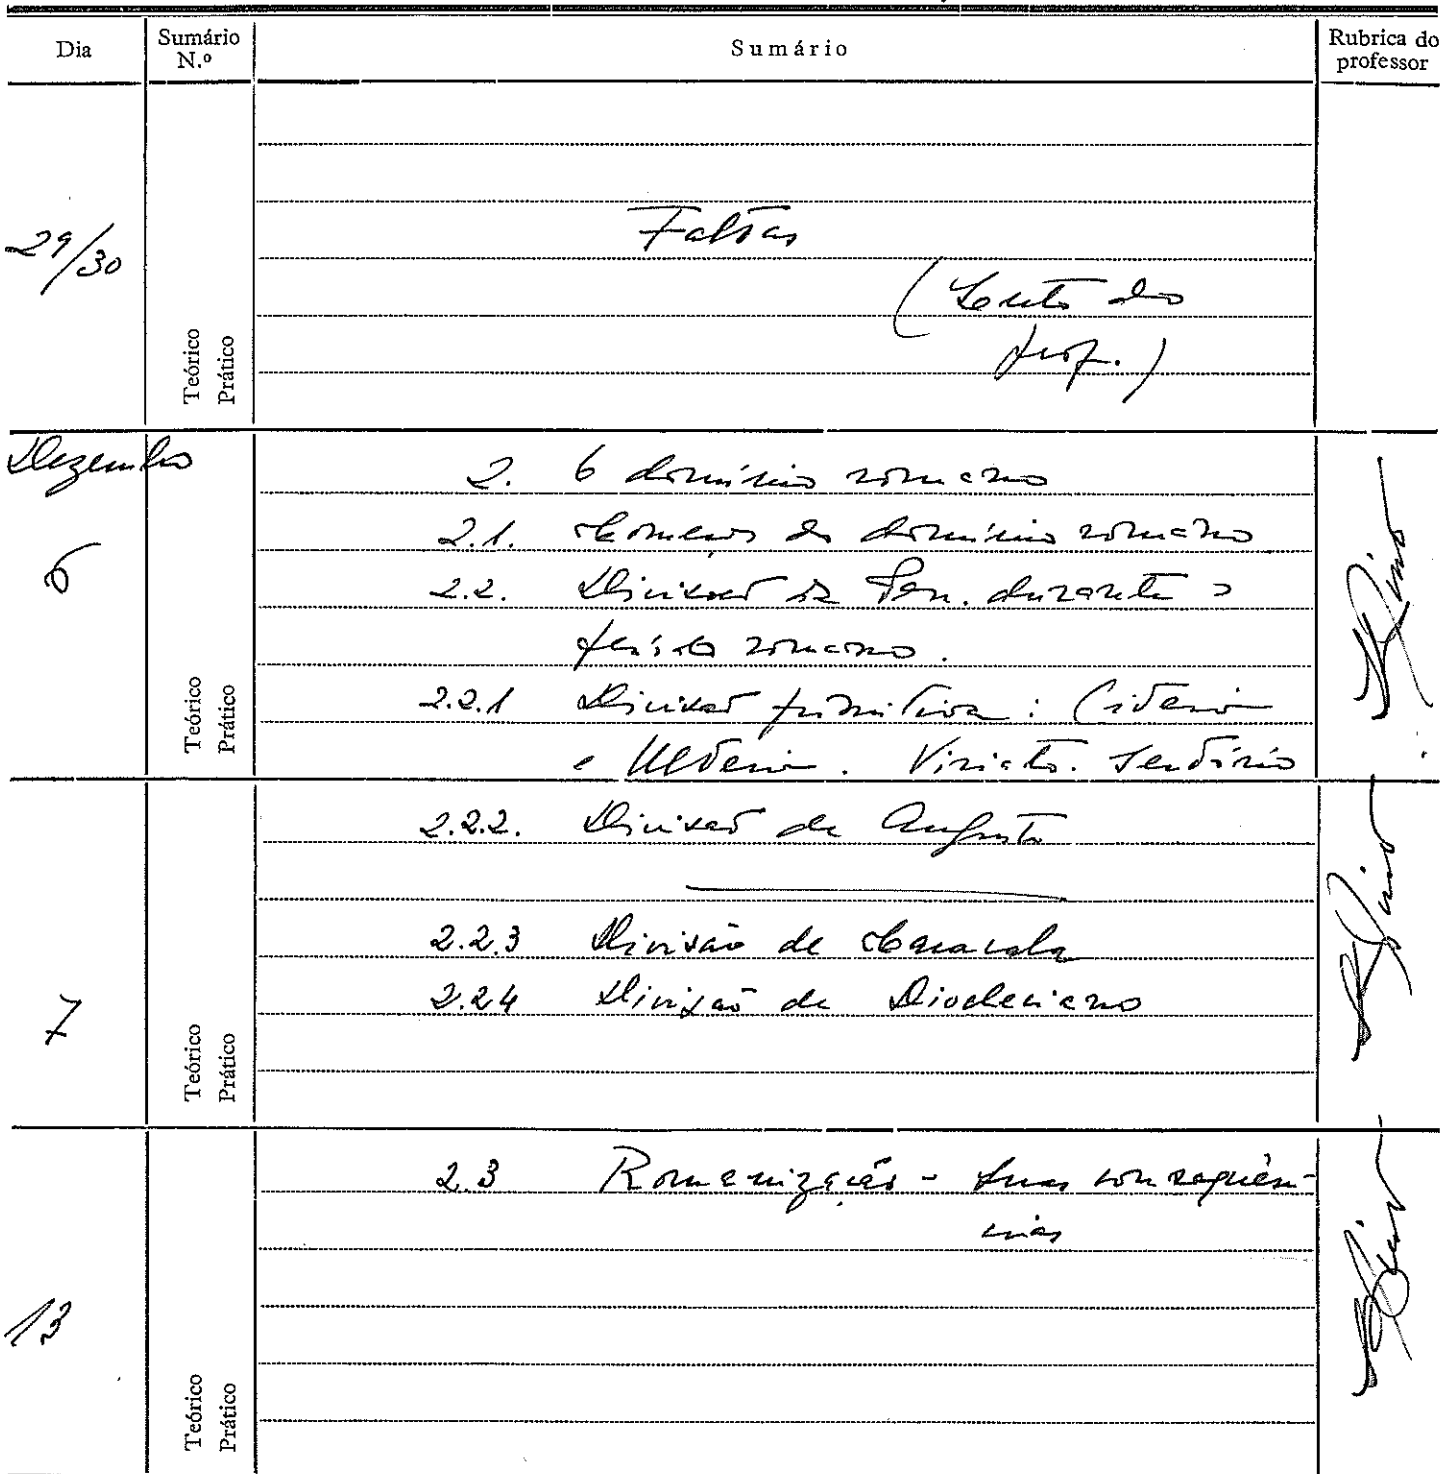 Dia
Sumário N.º
Sumário
Rubrica do professor
29/30
Teórico
Prático
Faltas
(Luto do
prof.)
Dezembro
6
Teórico
Prático
2. O domínio romano
2.1. Começos do domínio romano
2.2. Divisões da Pen. durante o
período romano.
2.2.1 Divisão primitiva: Citerior
e Ulterior. Viriato. Sertório
7
Teórico
Prático
2.2.2. Divisão de Augusto
2.2.3 Divisão de Caracala
2.2.4 Divisão de Diocleciano
13
Teórico
Prático
2.3 Romanização - suas consequên-
cias